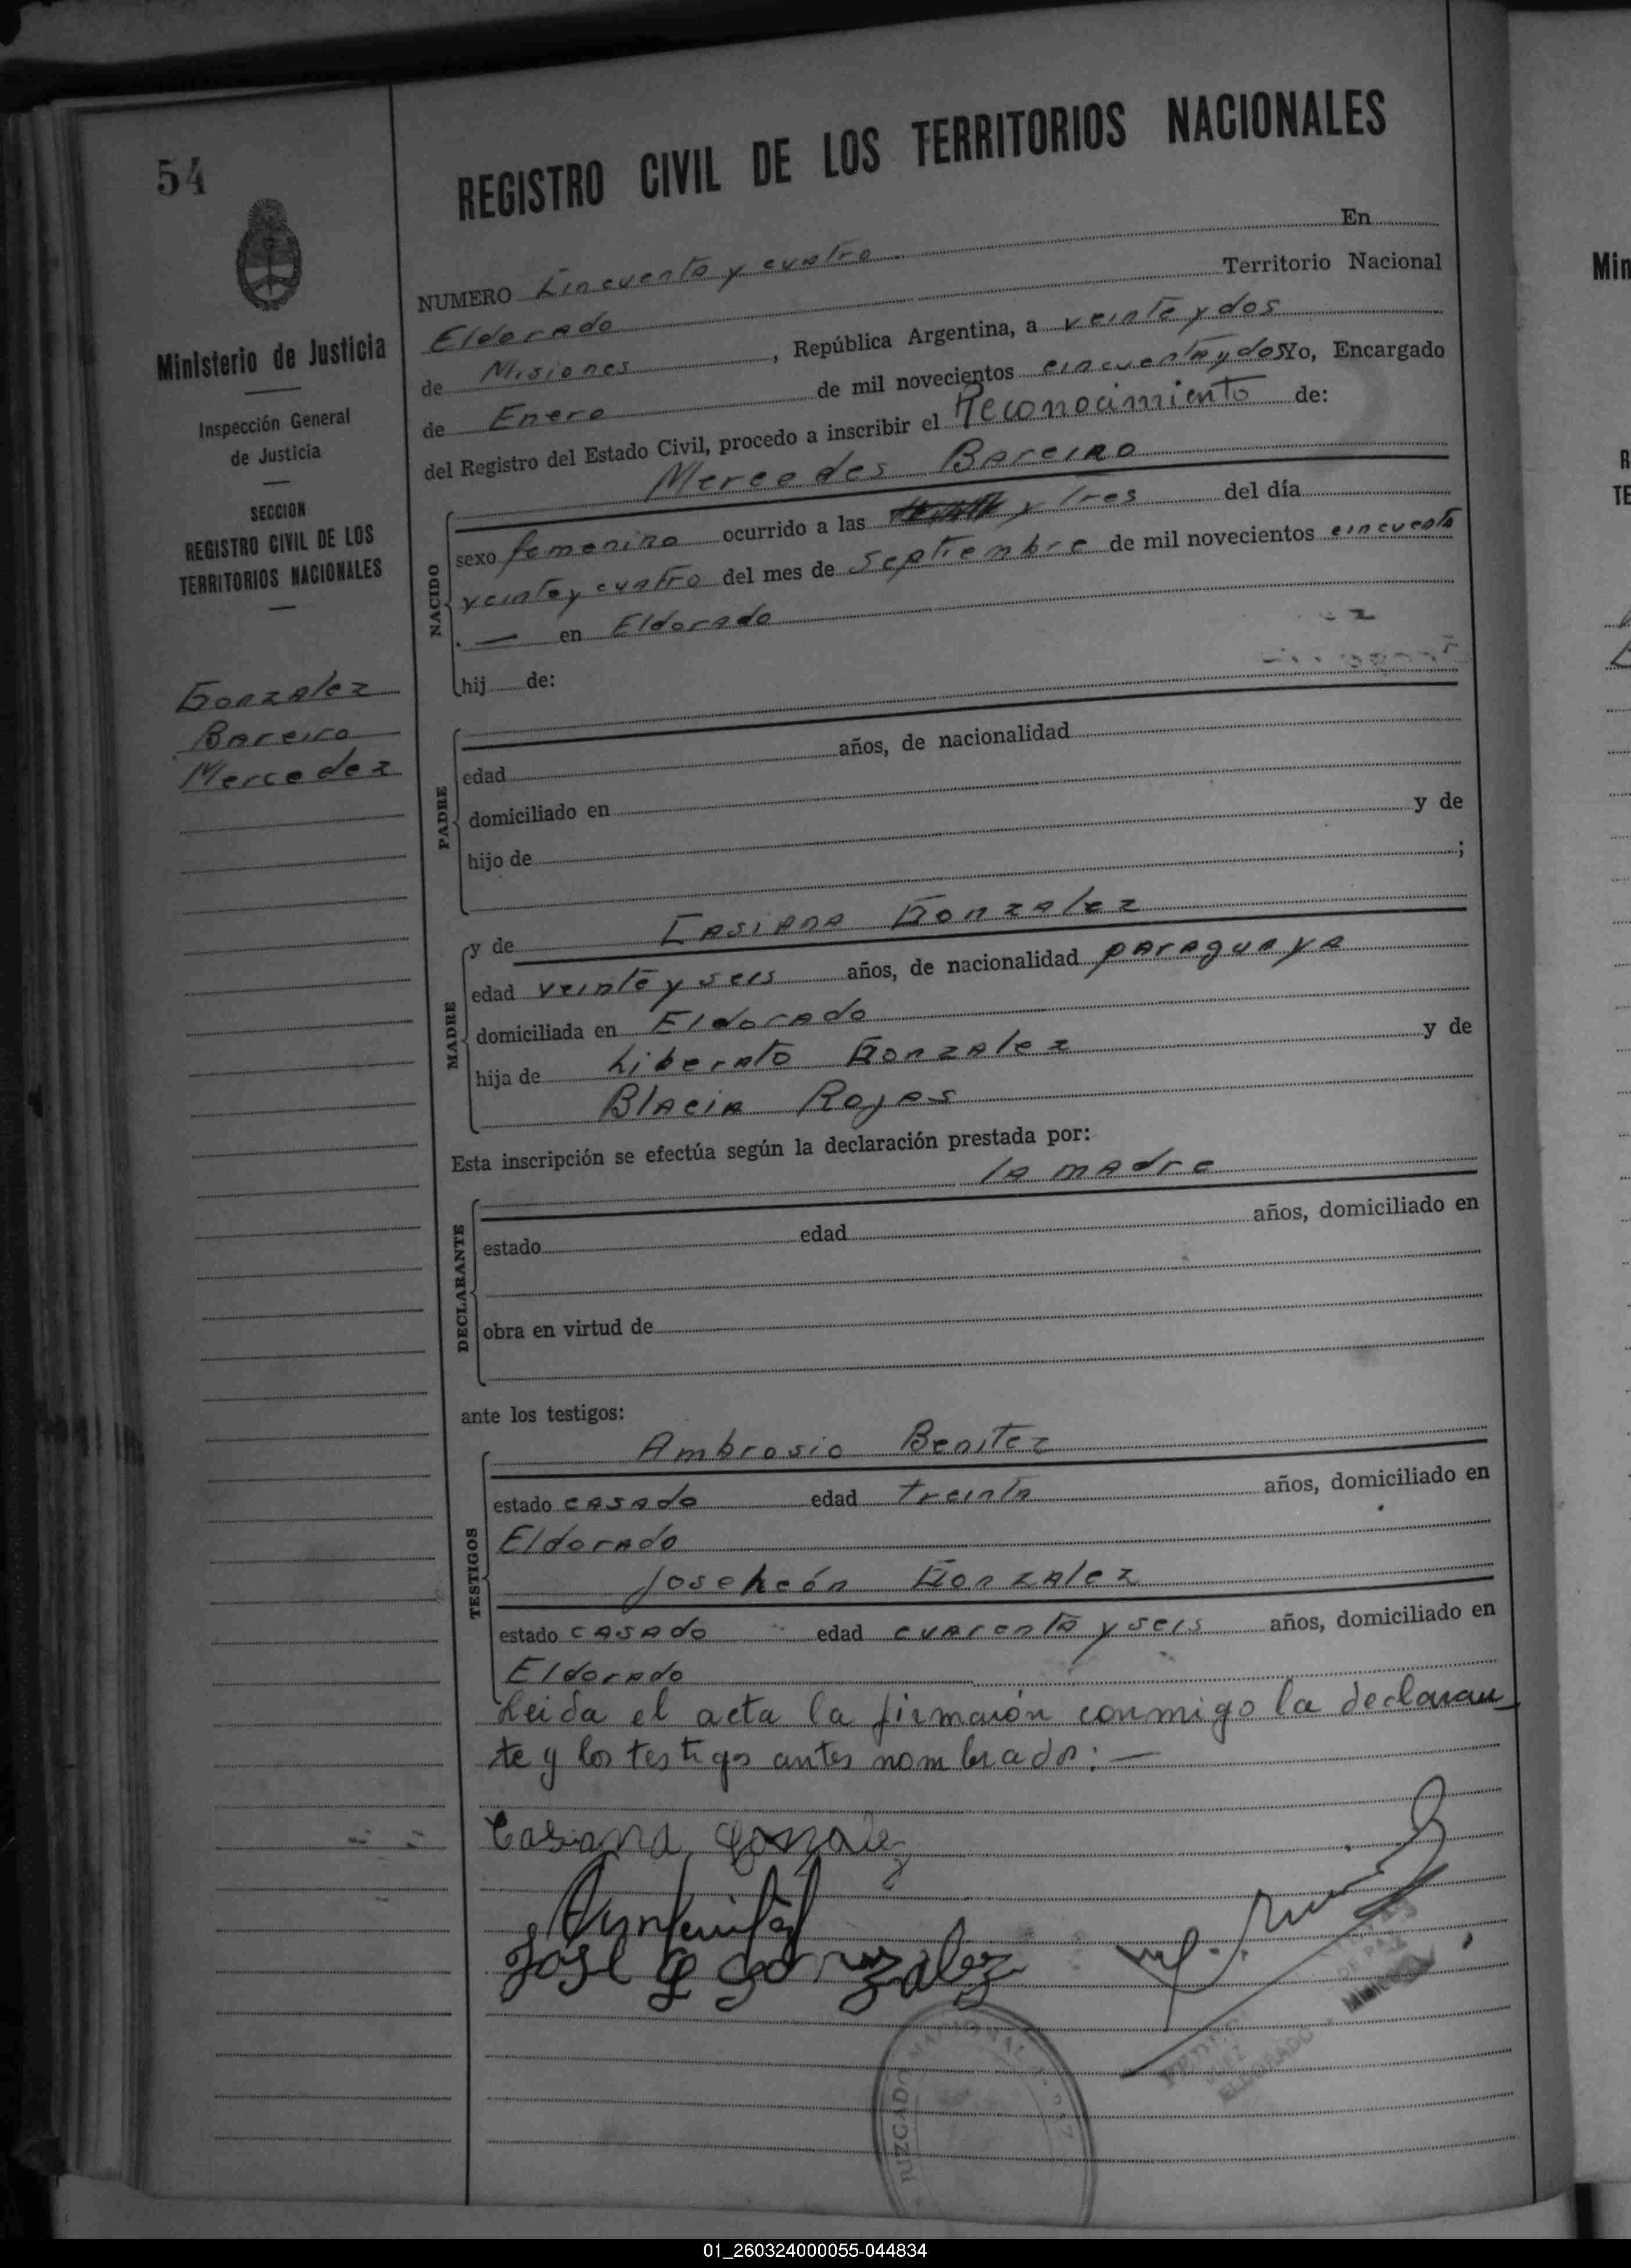 54
REGISTRO CIVIL DE LOS TERRITORIOS NACIONALES
Ministerio de Justicia
Inspección General
de Justicia
SECCION
REGISTRO CIVIL DE LOS
TERRITORIOS NACIONALES
Gonzalez
Bareiro
Mercedez
NUMERO Cincuenta y cuatro En
Eldorado Territorio Nacional
de Misiones, República Argentina, a veinte y dos
de Enero de mil novecientos cincuenta y dos Yo, Encargado
del Registro del Estado Civil, procedo a inscribir el Reconocimiento de:
Mercedes Bareiro
NACIDO
sexo femenino ocurrido a las y tres del día
veinte y cuatro del mes de septiembre de mil novecientos cincuenta
. — en Eldorado
hij de:
PADRE
edad años, de nacionalidad
domiciliado en
hijo de y de
;
MADRE
y de Casiana Gonzalez
edad veinte y seis años, de nacionalidad paraguaya
domiciliada en Eldorado
hija de Liberato Gonzalez y de
Blacia Rojas
Esta inscripción se efectúa según la declaración prestada por:
la madre
DECLARANTE
estado edad años, domiciliado en
obra en virtud de
ante los testigos:
TESTIGOS
Ambrosio Benitez
estado casado edad treinta años, domiciliado en
Eldorado
Jose León Gonzalez
estado casado edad cuarenta y seis años, domiciliado en
Eldorado
Leida el acta la firmarón conmigo la declaran
te y los testigos antes nombrados: —
Casiana Gonzalez
Jose L Gonzalez
JUZGADO NACIONAL
DE PAZ
JUEZ
ELDORADO - MISIONES
Min
R
TE
01_260324000055-044834